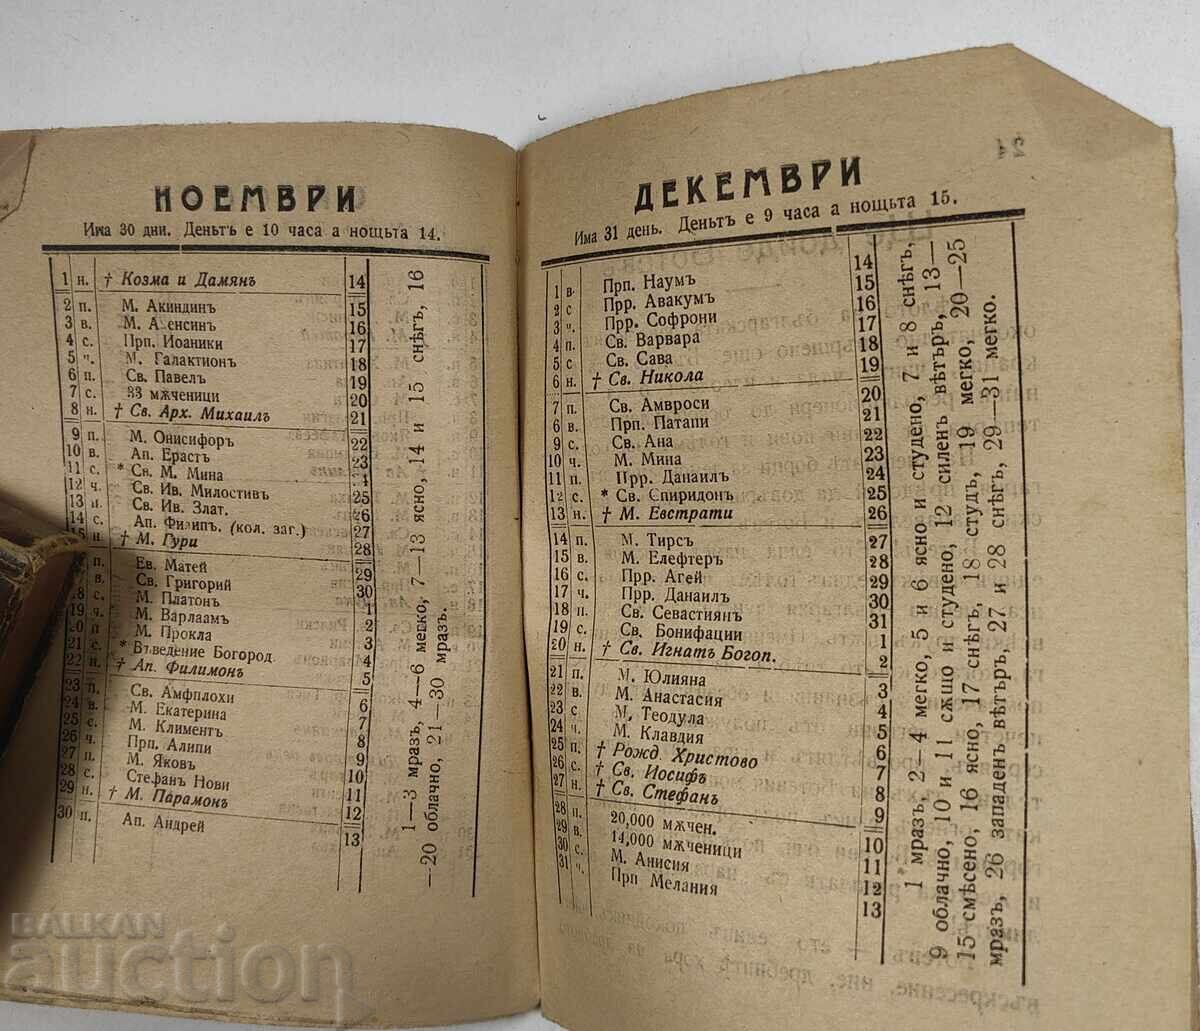 НОЕМВРИ
Има 30 дни. Деньтъ е 10 часа а нощьта 14.
1 н. † Козма и Дамянъ 14
2 п. М. Акиндинъ 15
3 в. 16
4 с. Прп. Иоаники 17
5 ч. М. Галактион 18
6 п. Св. Павелъ 19
7 с. 33 мѫченици 20
8 н. † Св. Арх. Михаилъ 21
9 п. М. Онисифоръ 22
10 в. Ап. Ерастъ 23
11 с. * Св. М. Мина
12 ч. Св. Ив. Милостивъ 25
13 п. Св. Ив. Злат. 26
14 с. Ап. Филипъ. (кол. заг.) 27
н. † М. Гури 28
п. Ев. Матей 29
в. Св. Григорий 30
с. М. Платонъ 1
19 ч. М. Варлаамъ 2
20 п М. Прокла 3
21 с. * Въведение Богород. 4
22 н. † Ап. Филимонъ 5
23 п. Св. Амфплохи 6
24 в. М. Екатерина 7
25 с. М. Климентъ 8
26 ч. Прп. Алипи 9
27 п. М. Яковъ 10
28 с. Стефанъ Нови 11
29 н. † М. Парамонъ 12
30 п. Ап. Андрей 13
1—3 мразъ, 4—6 мегко, 7—13 ясно, 14 и 15 снѣгъ, 16
—20 облачно, 21—30 мразъ.
ДЕКЕМВРИ
Има 31 день. Деньтъ е 9 часа а нощьта 15.
14
1 в. Прп. Наумъ 15
2 с Прр. Авакумъ 16
3 ч. Прр. Софрони 17
4 п. Св. Варвара 18
5 с Св. Сава 19
6 н. † Св. Никола
7 п. Св. Амвроси 20
6 в. Прп. Патапи 21
9 с. Св. Ана 22
10 ч. М. Мина 23
11 п. Прр. Данаилъ 24
12 с. * Св. Спиридонъ 25
13 н. † М. Евстрати 26
14 п. М. Тирсъ 27
15 в. М. Елефтеръ 28
16 с. Прр. Агей 29
17 ч. Прр. Данаилъ 30
18 п. Св. Севастиянъ 31
19 с. Св. Бонифации 1
20 н. † Св. Игнатъ Богоп. 2
21 п. М. Юлияна 3
22 в. М. Анастасия 4
23 с М. Теодула 5
24 ч. М. Клавдия 6
25 п. † Рожд. Христово 7
26 с. † Св. Иосифъ 8
27 н. † Св. Стефанъ 9
28 п. 20,000 мѫчен. 10
29 в. 14,000 мѫченици 11
30 с. М. Анисия 12
31 ч. Прп Мелания 13
1 мразъ, 2—4 мегко, 5 и 6 ясно и студено, 7 и 8 снѣгъ,
9 облачно, 10 и 11 сѫщо и студено, 12 силенъ вѣтъръ, 13—
15 смѣсено, 16 ясно, 17 снѣгъ, 18 студъ, 19 мегко, 20—25
мразъ, 26 западенъ вѣтъръ, 27 и 28 снѣгъ, 29—31 мегко.
BALKAN
auction